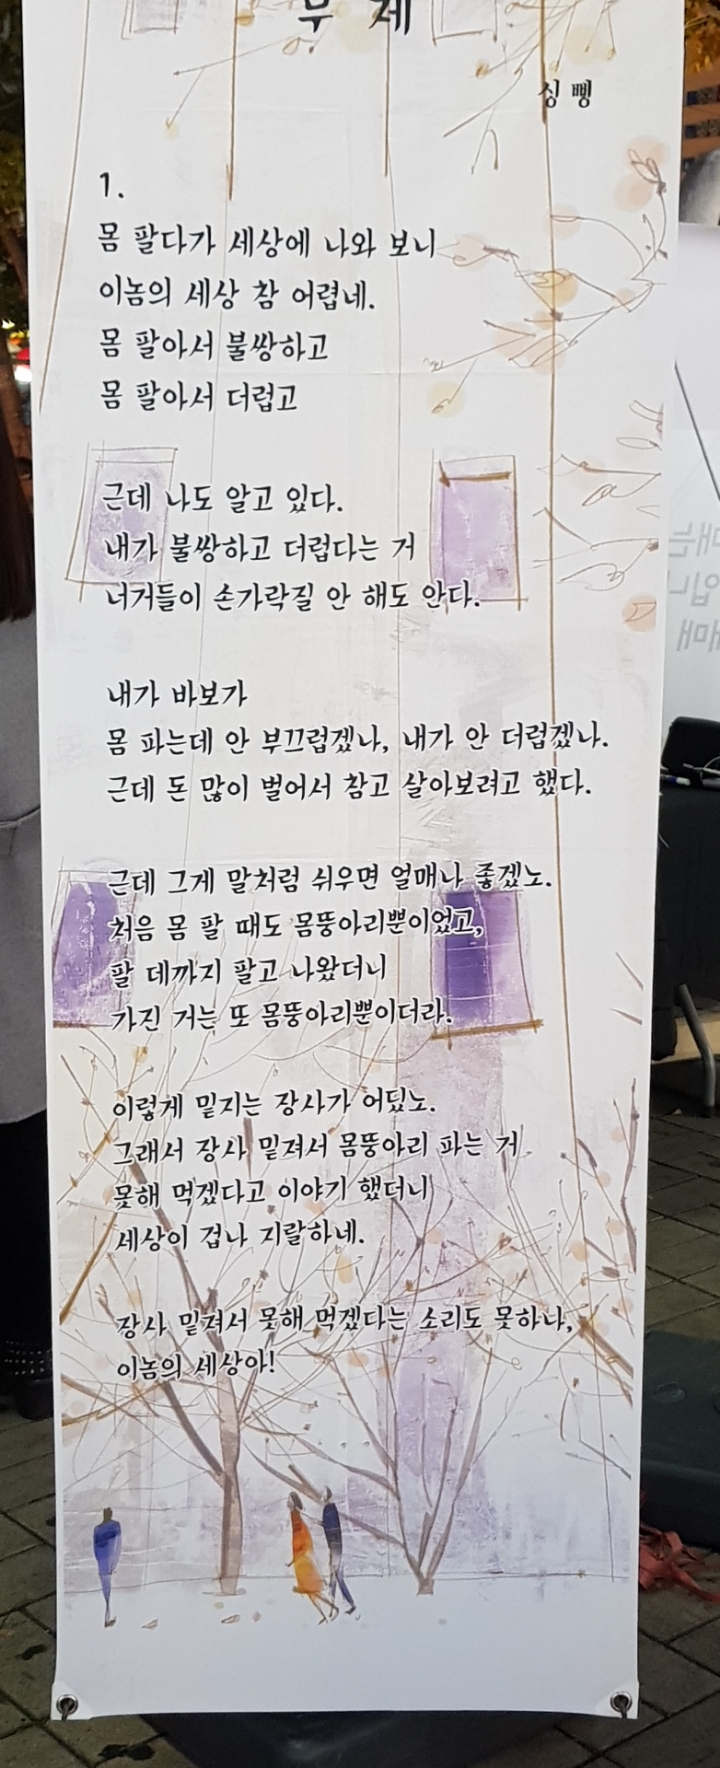 무 제
싱 삥
1.
몸 팔다가 세상에 나와 보니
이놈의 세상 참 어렵네.
몸 팔아서 불쌍하고
몸 팔아서 더럽고
근데 나도 알고 있다.
내가 불쌍하고 더럽다는 거
너거들이 손가락질 안 해도 안다.
내가 바보가
몸 파는데 안 부끄럽겠나, 내가 안 더럽겠나.
근데 돈 많이 벌어서 참고 살아보려고 했다.
근데 그게 말처럼 쉬우면 얼매나 좋겠노.
처음 몸 팔 때도 몸뚱아리뿐이었고,
팔 데까지 팔고 나왔더니
가진 거는 또 몸뚱아리뿐이더라.
이렇게 밑지는 장사가 어딨노.
그래서 장사 밑져서 몸뚱아리 파는 거
못해 먹겠다고 이야기 했더니
세상이 겁나 지랄하네.
장사 밑져서 못해 먹겠다는 소리도 못하나,
이놈의 세상아!